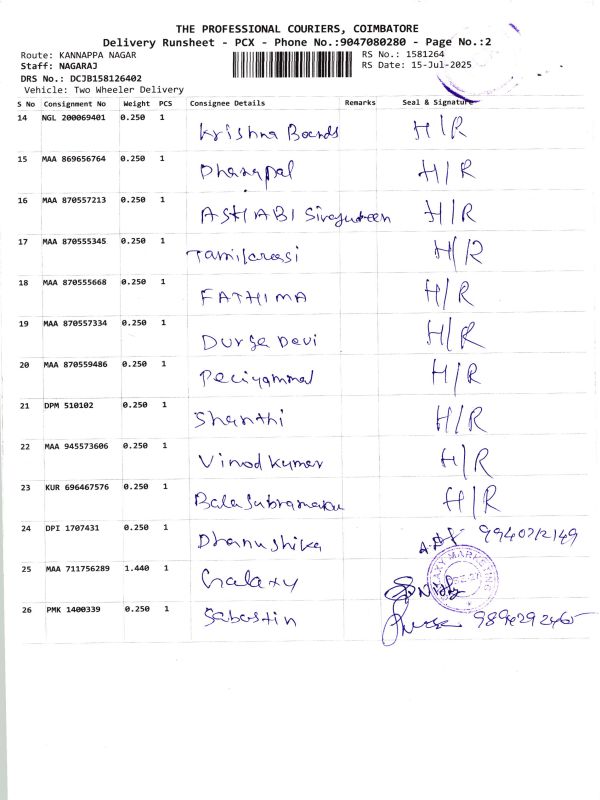 THE PROFESSIONAL COURIERS, COIMBATORE
Delivery Runsheet - PCX - Phone No.:9047080280 - Page No.:2
Route: KANNAPPA NAGAR RS No.: 1581264
Staff: NAGARAJ RS Date: 15-Jul-2025
DRS No.: DCJB158126402
Vehicle: Two Wheeler Delivery
S No Consignment No Weight PCS Consignee Details Remarks Seal & Signature
14 NGL 200069401 0.250 1 Krishna Boards H/R
15 MAA 869656764 0.250 1 Dhanapal H/R
16 MAA 870557213 0.250 1 ASHABI Sirajudeen H/R
17 MAA 870555345 0.250 1 Tamilarasi H/R
18 MAA 870555668 0.250 1 FATHIMA H/R
19 MAA 870557334 0.250 1 Durga Devi H/R
20 MAA 870559486 0.250 1 Peciyammal H/R
21 DPM 510102 0.250 1 Shanthi H/R
22 MAA 945573606 0.250 1 Vinod Kumar H/R
23 KUR 696467576 0.250 1 Balasubramani H/R
24 DPI 1707431 0.250 1 Dhanushika 9940712149
25 MAA 711756289 1.440 1 Galaxy
GALAXY MARKETING
26 PMK 1400339 0.250 1 Sabastin 9894292465